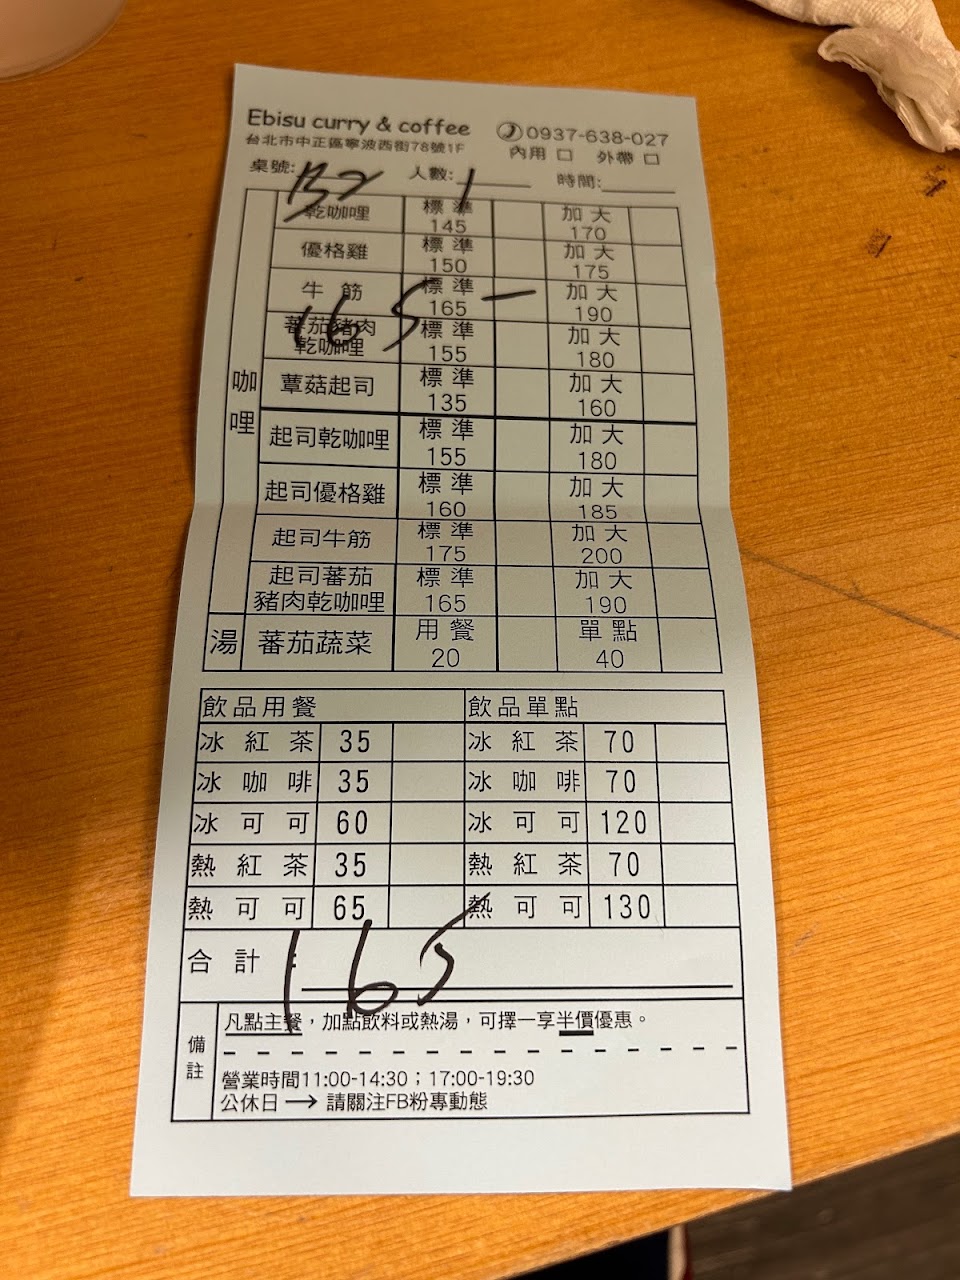 Ebisu curry & coffee
0937-638-027
台北市中正區寧波西街78號1F
內用 □ 外帶 □
桌號: B2 人數: 1 時間:
咖哩
乾咖哩 標準 145 加大 170
優格雞 標準 150 加大 175
牛筋 標準 165 加大 190
165 -
蕃茄豬肉乾咖哩 標準 155 加大 180
蕈菇起司 標準 135 加大 160
起司乾咖哩 標準 155 加大 180
起司優格雞 標準 160 加大 185
起司牛筋 標準 175 加大 200
起司蕃茄豬肉乾咖哩 標準 165 加大 190
湯 蕃茄蔬菜 用餐 20 單點 40
飲品用餐 飲品單點
冰紅茶 35 冰紅茶 70
冰咖啡 35 冰咖啡 70
冰可可 60 冰可可 120
熱紅茶 35 熱紅茶 70
熱可可 65 熱可可 130
合計: 165
備註
凡點主餐，加點飲料或熱湯，可擇一享半價優惠。
營業時間11:00-14:30；17:00-19:30
公休日 → 請關注FB粉專動態